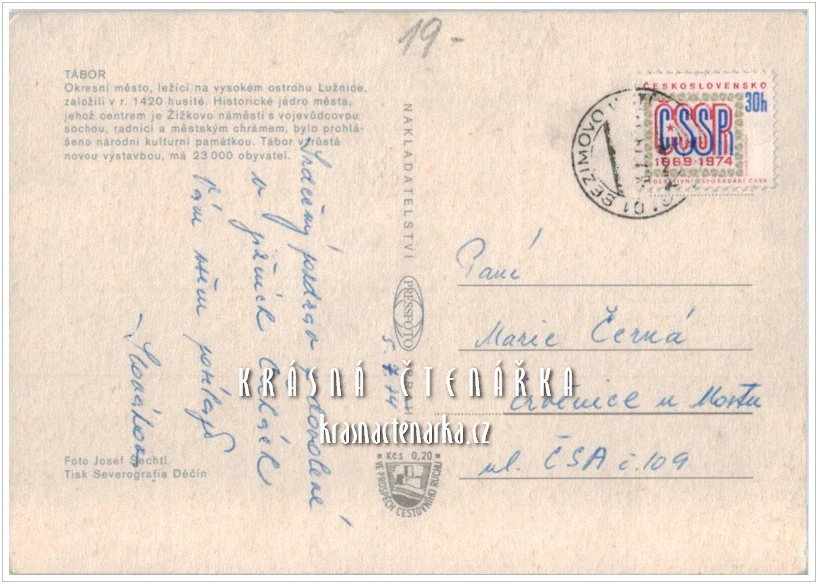 19-
TÁBOR
Okresní město, ležící na vysokém ostrohu Lužnice,
založili v r. 1420 husité. Historické jádro města,
jehož centrem je Žižkovo náměstí s vojevůdcovou
sochou, radnicí a městským chrámem, bylo prohlá-
šeno národní kulturní památkou. Tábor vyrůstá
novou výstavbou, má 23 000 obyvatel.
Srdečný pozdrav z dovolené
v jižních Čechách
Vám všem posílají
Foto Josef Šechtl
Tisk Severografia Děčín
NAKLADATELSTVÍ
PRESSFOTO
5.7.74
Kčs 0,20
VE PROSPĚCH CESTOVNÍHO RUCHU
ČESKOSLOVENSKO
30h
ČSSR
1969-1974
01 SEZIMOVO
Paní
Marie Černá
Ervěnice u Mostu
ul. ČSA č. 109
KRÁSNÁ ČTENÁŘKA
krasnactenarka.cz